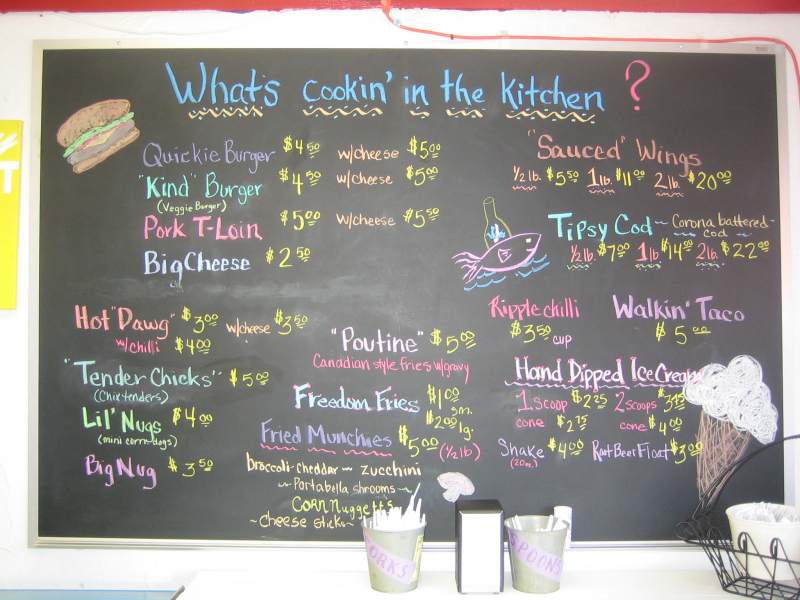 What's cookin' in the kitchen ?
Quickie Burger $4.50 w/cheese $5.00
"Kind" Burger $4.50 w/cheese $5.00
(Veggie Burger)
Pork T-Loin $5.00 w/cheese $5.50
Big Cheese $2.50
"Sauced" Wings
1/2 lb. $5.50 1 lb. $11.00 2 lb. $20.00
Tipsy Cod ~ Corona battered cod ~
1/2 lb. $7.00 1 lb $14.00 2 lb. $22.00
Hot "Dawg" $3.00 w/cheese $3.50
w/chilli $4.00
"Tender Chicks" $5.00
(Chix tenders)
Lil' Nugs $4.00
(mini corn dogs)
Big Nug $3.50
"Poutine" $5.00
Canadian style fries w/gravy
Freedom Fries $1.00 sm.
$2.00 lg.
Fried Munchies $5.00 (1/2 lb)
broccoli-cheddar ~ zucchini
~ Portabella shrooms ~
Corn Nuggetts
~ cheese sticks ~
Ripple chilli
$3.50 cup
Walkin' Taco
$5.00
Hand Dipped Ice Cream
1 scoop $2.25 2 scoops $3.45
cone $2.75 cone $4.00
Shake $4.00 Root Beer Float $3.00
(20oz.)
ORKS
SPOONS
T